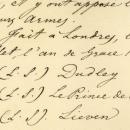 et y ont apposé l
urs Armes.
Fait à Londres, l
llet, l'an de Grace
(L.S.) Dudley
(L.S.) Le Prince de
(L.S.) Lieven